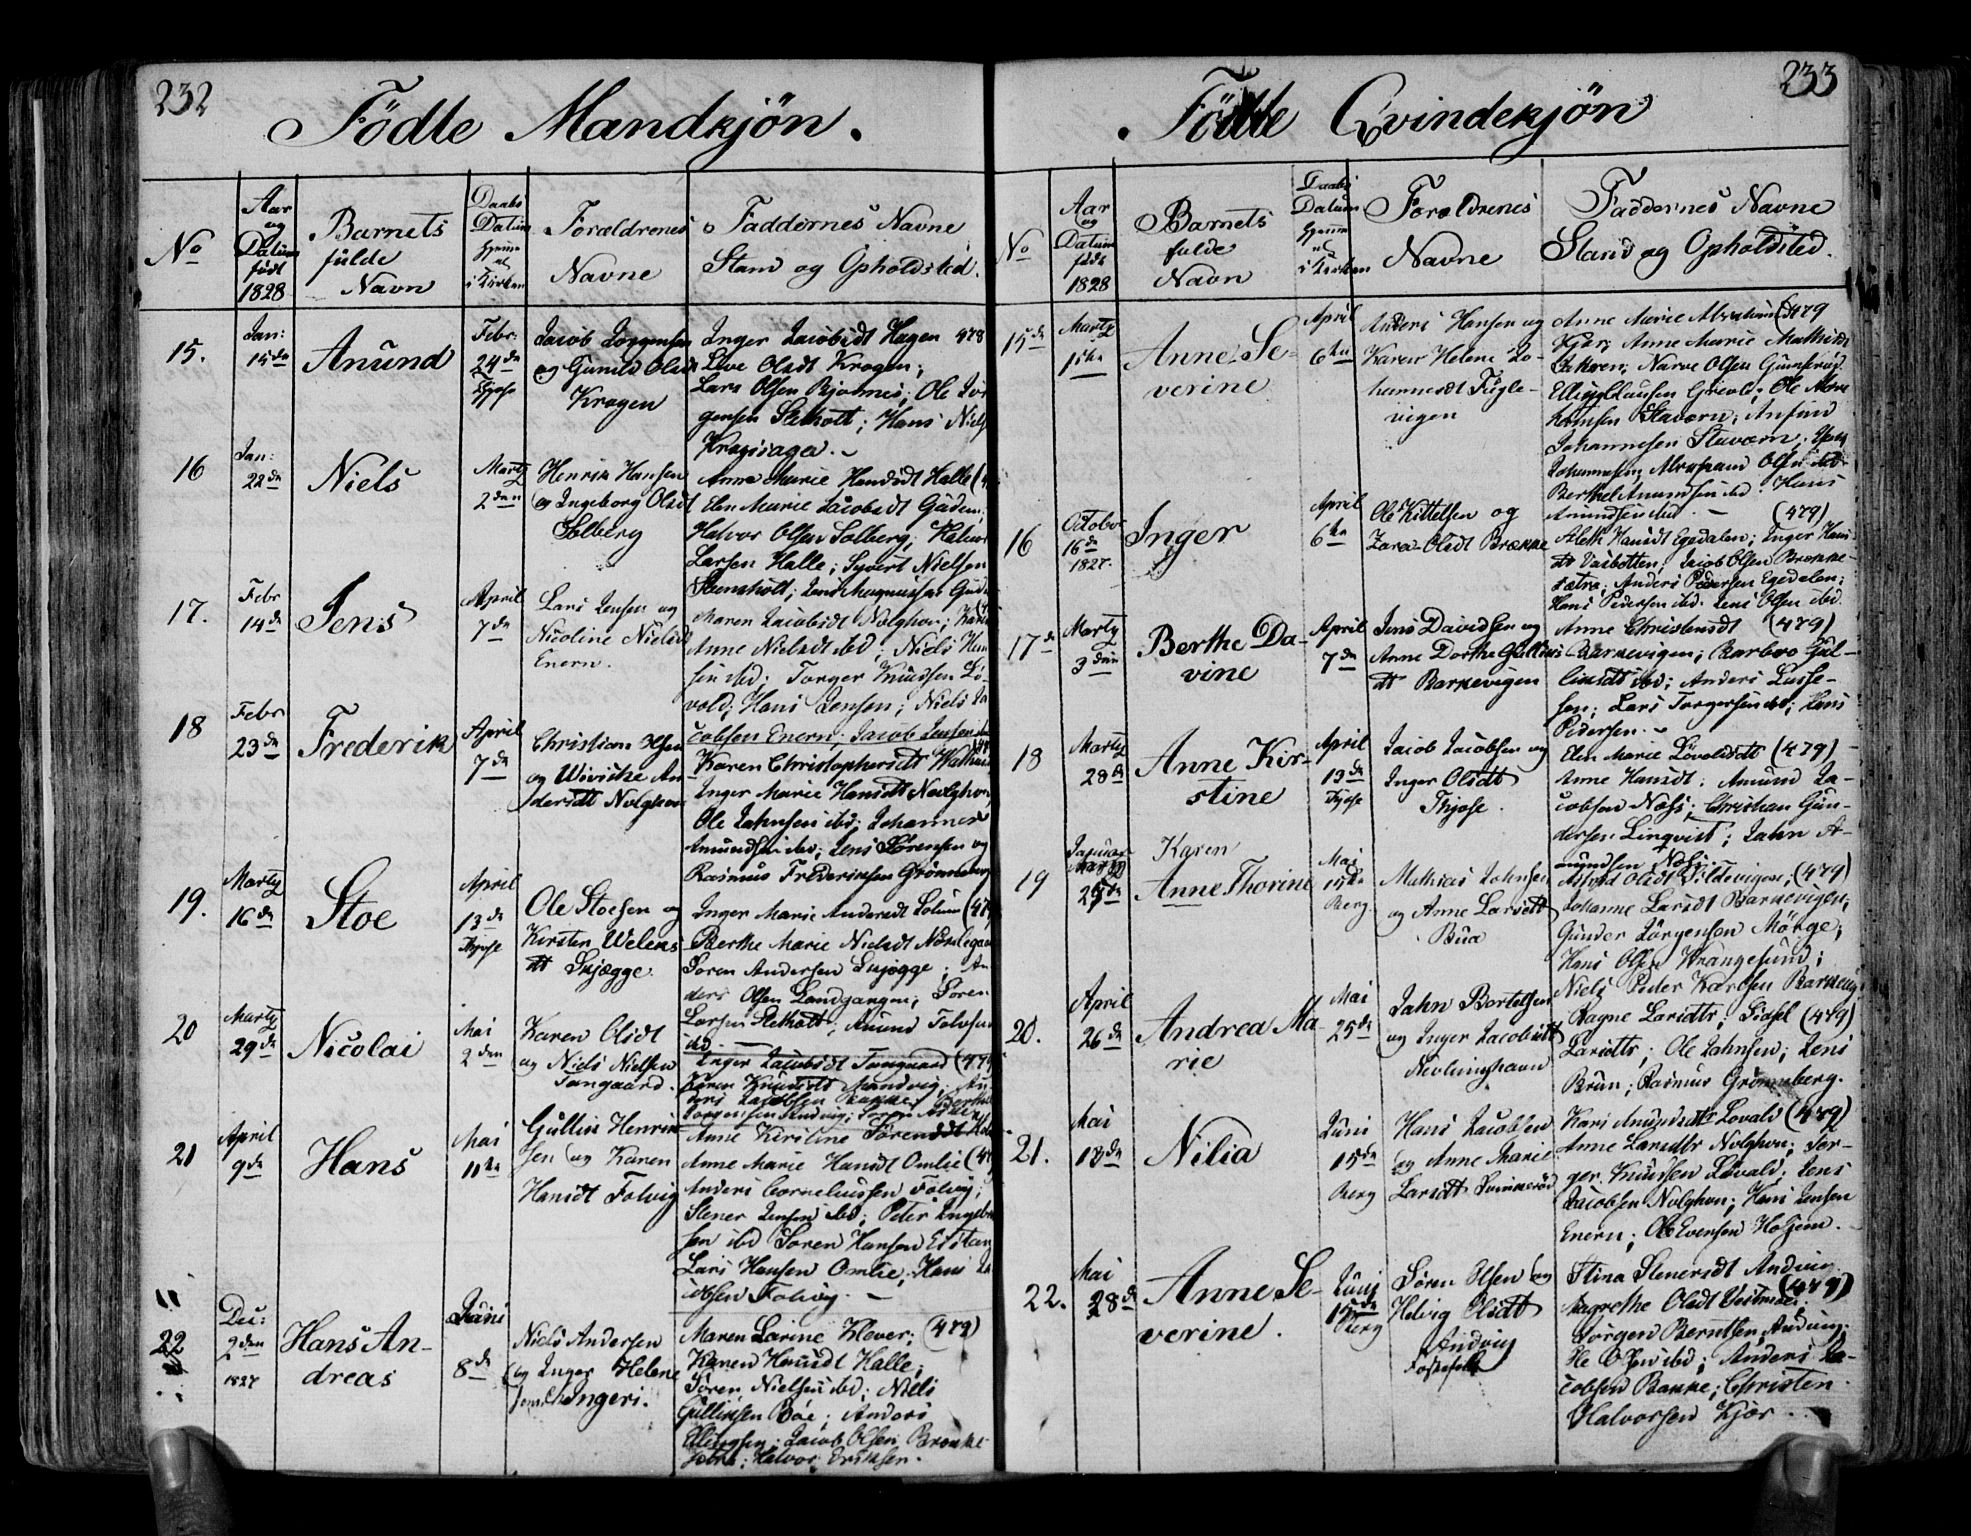 232
Födte Mandkjön.
No
Aar
og
Datum
födt
1828
Barnets
fulde
Navn
Daabs
Datum
hjemme
el
i Kirken
Forældrenes
Navne
Faddernes Navne
Stand og Opholdsted.
15.
Jan:
15de
Anund
Febr:
24de
Jacob Jørgensen
og Gunild Olsdt
Kragen
Inger Jacobsdt Hagen 479
Live Olsdt Kragen;
Lars Olsen Bjønnes; Ole
gensen Sletholt; Hans Niels
16
Jan:
22de
Niels
Marty
2den
Henrik Hansen
og Ingeborg Olsdt
Solberg
Anne Marie Halle
Elen Marie Jacobsdt Guden;
Halvor Olsen Solberg; Halvor
Larsen Halle; Syvert Nielsen
Stensholt; Jens Magnussen
17.
Febr
14de
Jens
April
7de
Lars Jensen og
Nicoline Nielsdt
Enern.
Maren Jacobsdt Nolghon;
Anne Nielsdt ibd; Niels
sen ibd; Torger Knudsen Lø-
vold; Hans Jensen; Niels Ja
cobsen Enern; Jacob Jensen
18
Febr
23de
Frederik
April
7de
Christian Olsen
og Wivike An
dersdt Nolghon
Karen Christophersdt
Inger Marie Hansdt Nolghon
Ole Jahnsen ibd; Johannes
Amundsen ibd; Jens Sørensen og
Rasmus Frederiksen Grønneberg
19.
Marty
16de
Stoe
April
13de
Thjose
Ole Stoesen og
Kirsten Welens
dt Skjægge.
Inger Marie Andersdt
Berthe Marie Nielsdt
Soren Andersen Skjegge; An
ders Olsen Landgangen; Soren
Larsen Sletholt; Anund
ibd.
20
Marty
29de
Nicolai
Mai
2den
Karen Olsdt
og Niels Nielsen
Tangaard.
Inger Jacobsdt Tangaard
Karen Knudsdt
ders Jacobsen Bakke;
21
April
9de
Hans
Mai
11te
Gullin Henrik
sen og Karen
Hansdt Folvig
Anne Kirstine Sørensdt
Anne Marie Hansdt Omlie
Anders Corneliussen Folvig;
Stener Jensen ibd; Peter
sen ibd Soren Hansen
Lars Hansen Omlie; Hans Ja
cobsen Folvig.
22
Dec:
2den
1827
Hans An-
dreas
Juni
8de
Niels Andersen
og Inger Helene
Maren Larine Klever; (479)
Karen Halle;
Sören Nielsen ibd; Niels
Gullicksen Böe; Anders
Ellingsen; Jacob Olsen Brække-
; Halvor Eriksen.
233
. Födte Qvindekjön
No
Aar
og
Datum
födt
1828
Barnets
fulde
Navn
Daabs
Datum
hjemme
el
i Kirken
Forældrenes
Navne
Faddernes Navne
Stand og Opholdsted.
15de
Marty
1ste
Anne Se-
verine
April
6te
Anders Hansen og
Karen Helene Jo-
hannesdt Fugle-
vigen
Anne Marie (479
Kjer; Anne Marie
; Narve Olsen
Johannesen Stavern;
Johannesen; Abraham Olsen ibd
Berthel Anundsen ibd. Hans
Anundsen ibd. -
16
Octobr
16de
1827.
Inger
April
6te
Ole Kittelsen og
Zara Olsdt Brække
(479)
Aleth Hansdt Egedalen; Inger Hans
dt Vasbotten; Jacob Olsen Brække-
sætre; Anders Pedersen Egedalen;
Hans Pedersen ibd. Jens Olsen ibd.
17de
Marty
3die
Berthe Da-
vine
April
7de
Jens Davidsen og
Anne Dorthe Gullics
dt Barkevigen
Anne Christensdt (479)
Barkevigen; Barbro Gul-
licksdt ibd; Anders Lasse-
sen; Lars Torgersen ibd; Jens
Pedersen.
18
Marty
28de
Anne Kir-
stine
April
13de
Thjose
Jacob Jacobsen og
Inger Olsdt
Thjose.
Elen Marie (479)
Anne Hansdt; Anund Ja-
cobsen Næs; Christian Gun-
dersen Linqvist; Jahn A-
nundsen Næs.
19
Januar
25de
Karen
Anne Thorine
Mai
15de
Berg.
Mathias Johnsen
og Anne Larsdt
Bua
Olsdt Sildevigen; (479)
Johanne Larsdt Barkevigen;
Gunder Jørgensen Mørge;
Hans Olsen Wrangesund;
Niels Peder Karlsen Barkevig
20.
April
26de
Andrea Ma-
rie
Mai
25de
Jahn Bertelsen
og Inger Jacobsdt
Nevlunghavn
Ragne Larsdtr; Sidsel (479)
Larsdtr; Ole Jahnsen; Jens
Brun; Rasmus Grønneberg.
21.
Mai
13de
Nilia
Juni
15de
Berg
Hans Jacobsen
og Anne Marie
Larsdt
Kari Anundsdtr Lovald (479)
Anne Larsdtr Nolghon; Tor-
ger Knudsen Løvald; Jens
Jacobsen Nolghon; Hans Jensen
Enern; Ole Evensen Holjem.
22.
Mai
28de
Anne Se-
verine.
Juni
15de
Berg
Søren Olsen og
Helvig Olsdt
Andvig
Stina Stenersdt Andvig
Magrethe Olsdt (479)
Jørgen Berntsen Andvig;
Ole Olsen ibd; Anders Ja-
cobsen Bakke; Christen
Halvorsen Kjør.